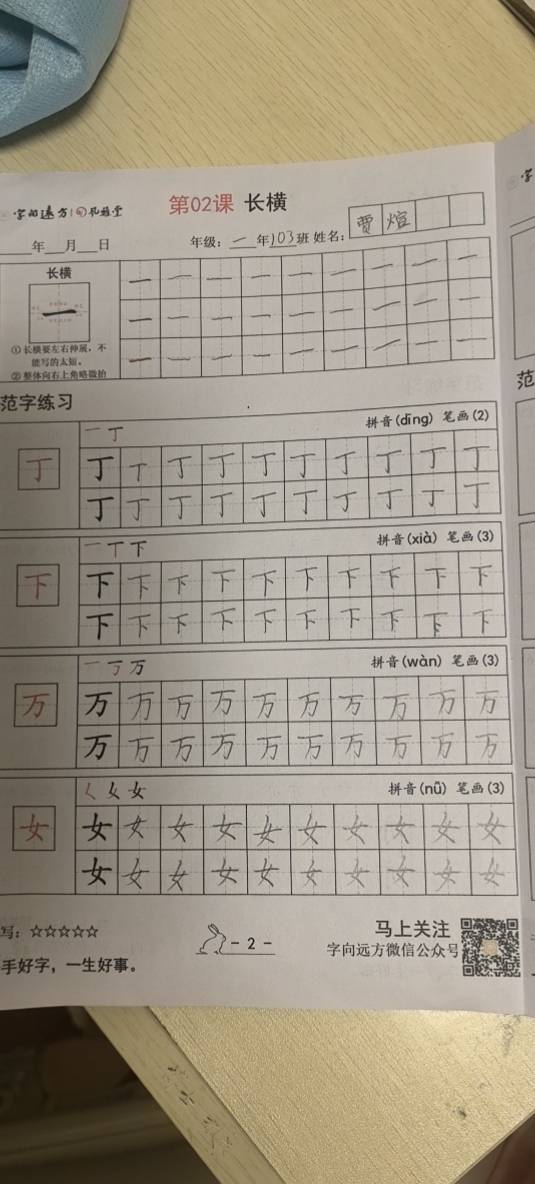 字向遠方
第02课 长横
年 月 日 年级：一 年103班 姓名：贾煊
长横
一
①长横要左右伸展，不
能写的太短。
②整体向右上角略微抬
一 一 一 一 一 一 一 一 一
一 一 一 一 一 一 一 一 一
一 一 一 一 一 一 一 一 一
范字练习
一丁 拼音(dīng) 笔画(2)
丁
丁 丁 丁 丁 丁 丁 丁 丁 丁 丁
丁 丁 丁 丁 丁 丁 丁 丁 丁 丁
一丅下 拼音(xià) 笔画(3)
下
下 下 下 下 下 下 下 下 下 下
下 下 下 下 下 下 下 下 下 下
一丂万 拼音(wàn) 笔画(3)
万
万 万 万 万 万 万 万 万 万 万
万 万 万 万 万 万 万 万 万 万
く 女 女 拼音(nǚ) 笔画(3)
女
女 女 女 女 女 女 女 女 女 女
女 女 女 女 女 女 女 女 女 女
写：☆☆☆☆☆
手好字，一生好事。
- 2 -
马上关注
字向远方微信公众号
字
范